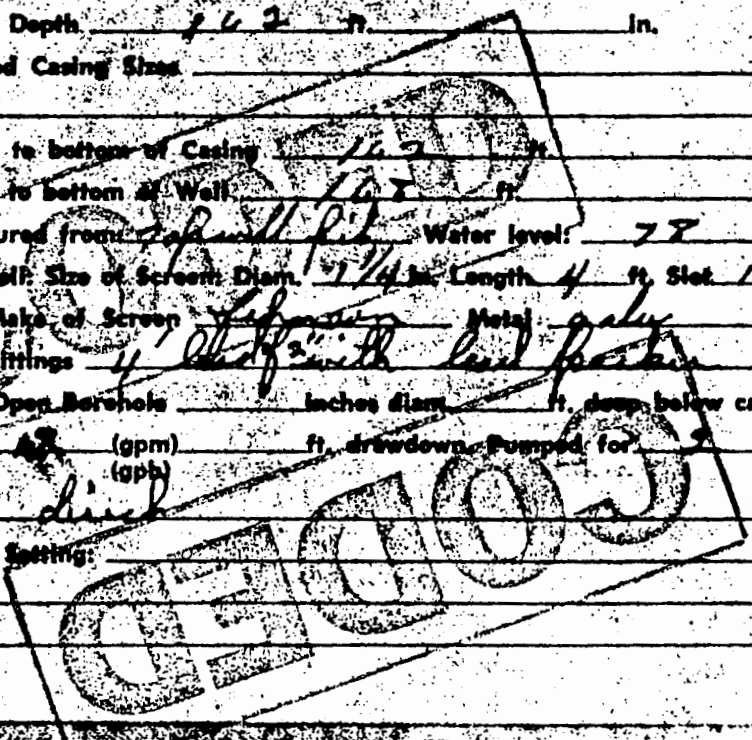 Depth 162 ft. in.
Casing Sizes
to bottom of Casing 162 ft.
to bottom of Well 168 ft.
from: Top well pit Water level: 78
Size of Screen: Diam. 1 1/4 in. Length 4 ft Slot
of Screen Johnson Metal
4' 2" with lead packer
Open Borehole inches diam. ft. deep below
(gpm) ft. drawdown. Pumped for
(gph)
Setting:
CODED
CODED